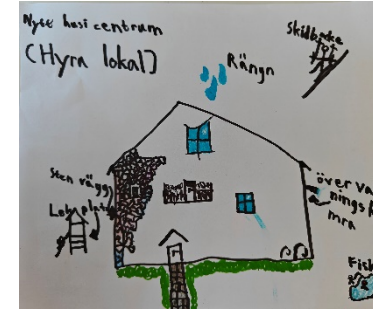 Nytt husi centrum
(Hyra lokal)
Skidbacke
Rängn
Sten vägg
Lekplats
över va
nings ka
mra
Fisk